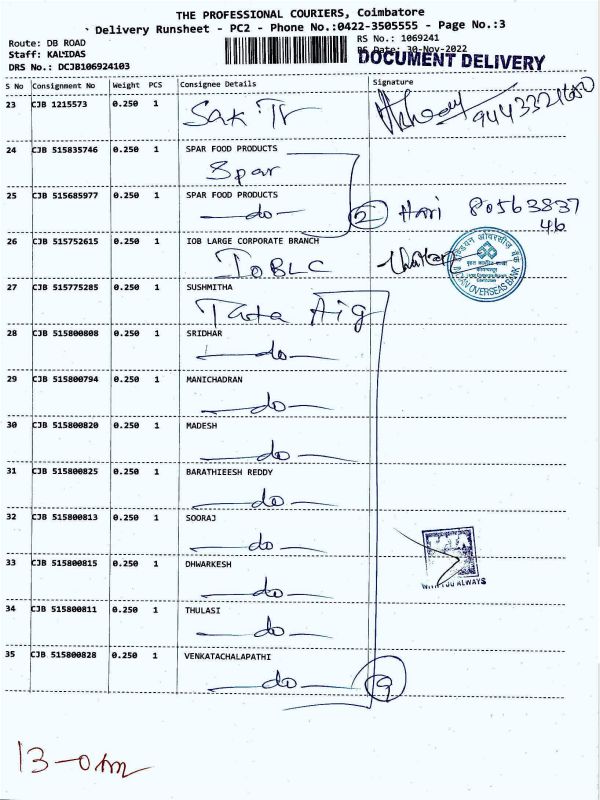 THE PROFESSIONAL COURIERS, Coimbatore
Delivery Runsheet - PC2 - Phone No.:0422-3505555 - Page No.:3
Route: DB ROAD
RS No.: 1069241
Staff: KALIDAS
RS Date: 30-Nov-2022
DOCUMENT DELIVERY
DRS No.: DCJB106924103
S No Consignment No Weight PCS Consignee Details Signature
23 CJB 1215573 0.250 1
Sak Tr
9443321680
24 CJB 515835746 0.250 1 SPAR FOOD PRODUCTS
Spar
25 CJB 515685977 0.250 1 SPAR FOOD PRODUCTS
—do— 2 Hari 80563837
46
26 CJB 515752615 0.250 1 IOB LARGE CORPORATE BRANCH
IOBLC
INDIAN OVERSEAS BANK
27 CJB 515775285 0.250 1 SUSHMITHA
Tata Aig
28 CJB 515800808 0.250 1 SRIDHAR
—do—
29 CJB 515800794 0.250 1 MANICHADRAN
—do—
30 CJB 515800820 0.250 1 MADESH
—do—
31 CJB 515800825 0.250 1 BARATHIEESH REDDY
—do—
32 CJB 515800813 0.250 1 SOORAJ
—do—
33 CJB 515800815 0.250 1 DHWARKESH
—do—
WITH YOU ALWAYS
34 CJB 515800811 0.250 1 THULASI
—do—
35 CJB 515800828 0.250 1 VENKATACHALAPATHI
—do— 9